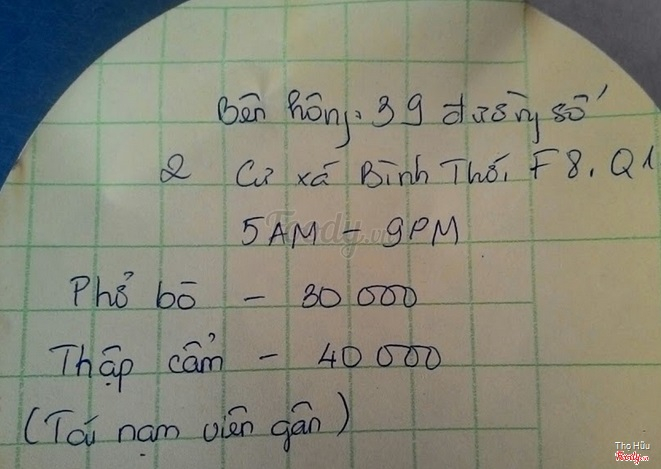 Bên hông: 39 đường số
2 Cư xá Bình Thới, F8, Q1
5AM - 9PM
Phở bò - 30 000
Thập cẩm - 40 000
(Tái nạm viên gân)
Foody.vn
Thọ Hữu
Foody.vn